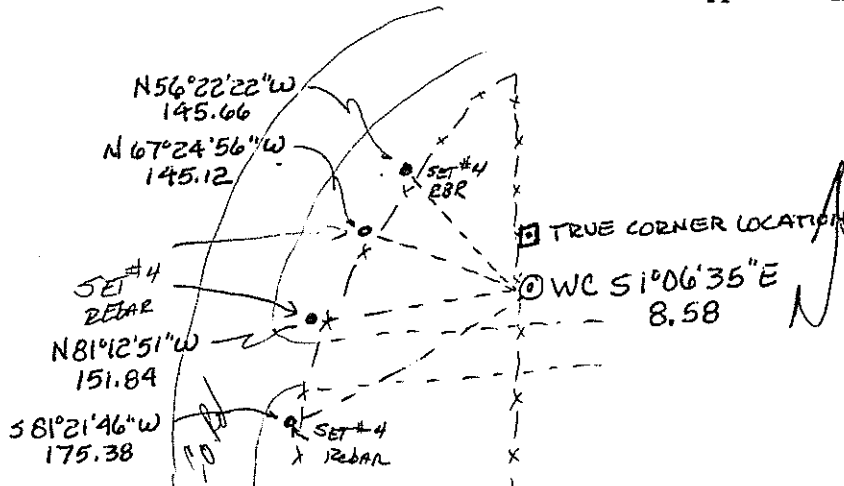 N56°22'22"W
145.66
N67°24'56"W
145.12
SET #4
RBR
TRUE CORNER LOCATION
SET #4
REBAR
WC S1°06'35"E
8.58
N81°12'51"W
151.84
S81°21'46"W
175.38
SET #4
REBAR
CO Rd
N